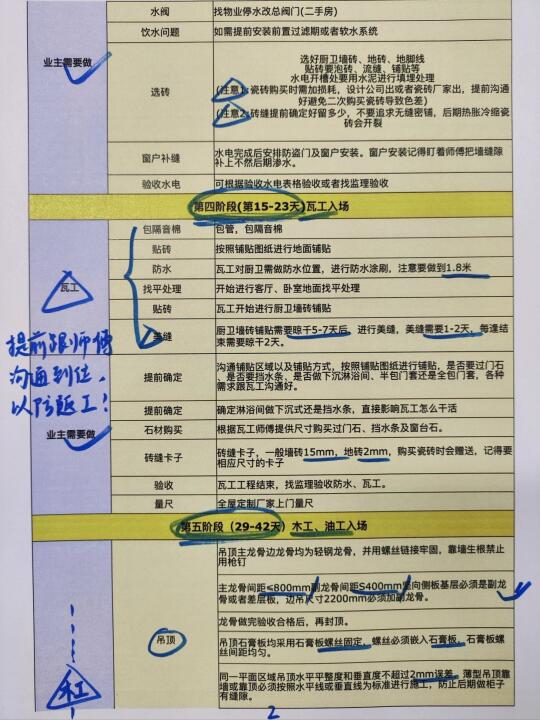 水阀 找物业停水改总阀门(二手房)
饮水问题 如需提前安装前置过滤期或者软水系统
业主需要做
选砖
选好厨卫墙砖、地砖、地脚线
贴砖要泡砖、流缝、铺贴等
水电开槽处要用水泥进行填埋处理
(注意1:瓷砖购买时需加损耗，设计公司出或者瓷砖厂家出，提前沟通
好避免二次购买瓷砖导致色差)
(注意2:砖缝提前确定好留多少，不要追求无缝密铺，后期热胀冷缩瓷
砖会开裂
窗户补缝
水电完成后安排防盗门及窗户安装。窗户安装记得盯着师傅把墙缝隙
补上不然后期渗水。
验收水电 可根据验收水电表格验收或者找监理验收
第四阶段(第15-23天)瓦工入场
瓦工
包隔音棉 包管，包隔音棉
贴砖 按照铺贴图纸进行地面铺贴
防水 瓦工对厨卫需做防水位置，进行防水涂刷，注意要做到1.8米
找平处理 开始进行客厅、卧室地面找平处理
贴砖 瓦工开始进行厨卫墙砖铺贴
美缝
厨卫墙砖铺贴需要晾干5-7天后，进行美缝，美缝需要1-2天，每逢结
束需要晾干2天。
提前跟师傅
沟通到位，
以防返工！
提前确定
沟通铺贴区域以及铺贴方式，按照铺贴图纸进行铺贴，是否要过门石
、是否要挡水条、是否做下沉淋浴间、半包门套还是全包门套，各种
需求跟瓦工沟通好。
提前确定 确定淋浴间做下沉式还是挡水条，直接影响瓦工怎么干活
业主需要做
石材购买 根据瓦工师傅提供尺寸购买过门石、挡水条及窗台石。
砖缝卡子
砖缝卡子，一般墙砖15mm，地砖2mm，购买瓷砖时会赠送，记得要
相应尺寸的卡子
验收 瓦工工程结束，找监理验收防水、瓦工。
量尺 全屋定制厂家上门量尺
第五阶段（29-42天）木工、油工入场
吊顶
吊顶主龙骨边龙骨均为轻钢龙骨，并用螺丝链接牢固，靠墙生根禁止
用枪钉
主龙骨间距≤800mm副龙骨间距S400mm竖向侧板基层必须是副龙
骨或者差层板，边吊尺寸2200mm必须加副龙骨。
龙骨做完验收合格后，再封顶。
吊顶石膏板均采用石膏板螺丝固定，螺丝必须嵌入石膏板，石膏板螺
丝间距均匀。
同一平面区域吊顶水平平整度和垂直度不超过2mm误差，薄型吊顶靠
墙或靠顶必须按照水平线或垂直线为标准进行施工，防止后期做柜子
有缝隙。
木工
2